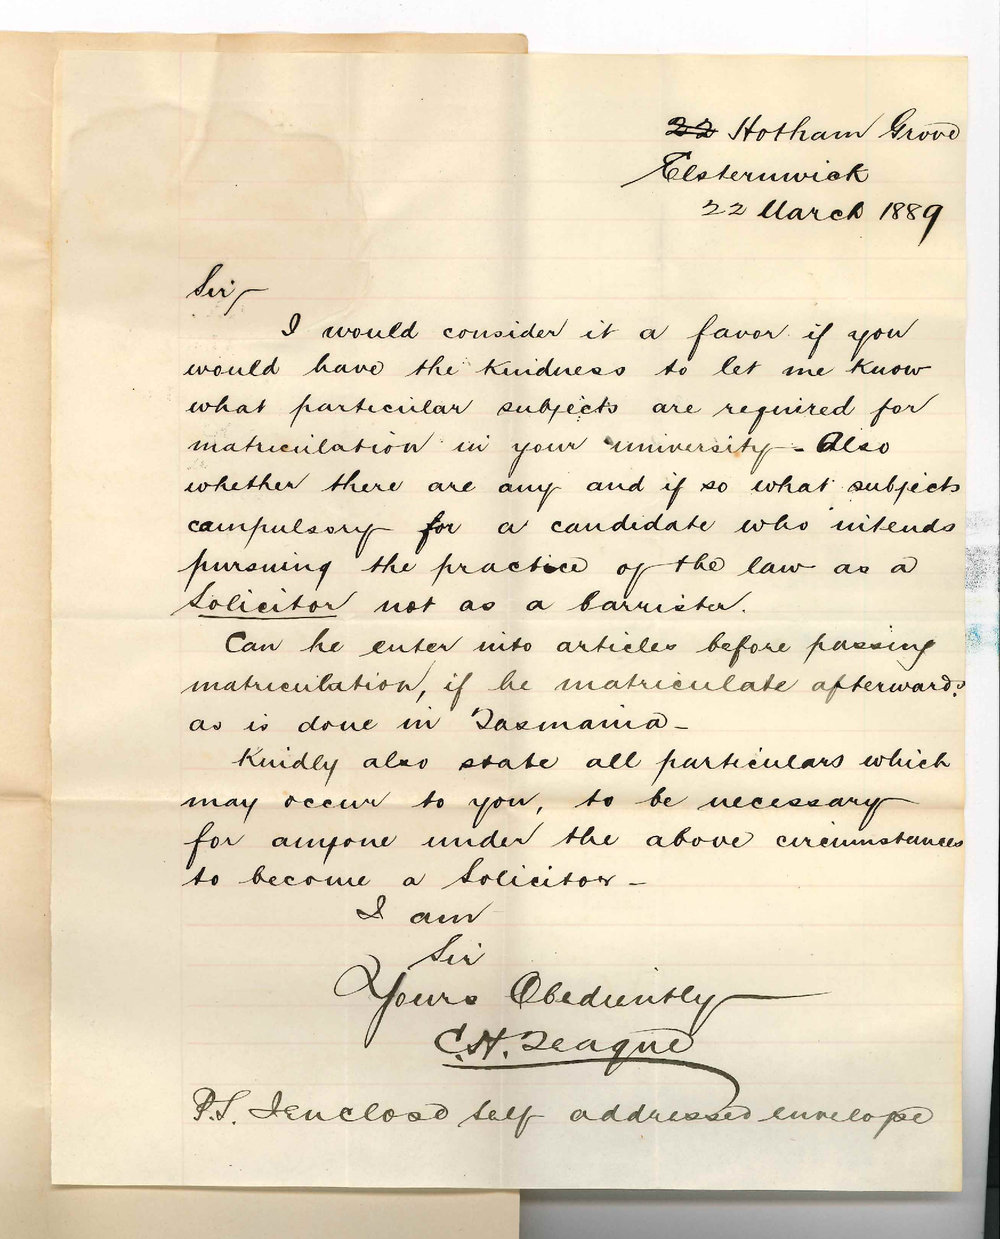 22 Hotham Grove
Elsternwick
22 March 1889
Sir,
I would consider it a favor if you
would have the kindness to let me know
what particular subjects are required for
matriculation in your university - Also
whether there are any and if so what subjects
compulsory for a candidate who intends
pursuing the practice of the law as a
Solicitor not as a barrister.
Can he enter into articles before passing
matriculation, if he matriculate afterwards?
as is done in Tasmania -
Kindly also state all particulars which
may occur to you, to be necessary
for anyone under the above circumstances
to become a Solicitor -
I am
Sir
Yours Obediently
C.H. Teague
P.S. I enclose self addressed envelope